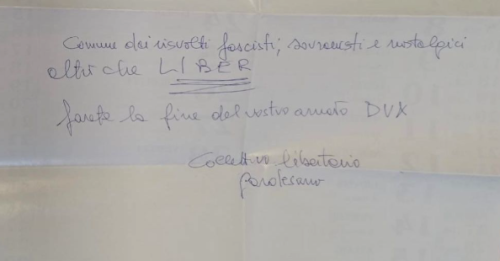 Comune dai risvolti fascisti, sovranisti e nostalgici
altri che LIBER
farete la fine del vostro amato DVX
Collettivo libertario
gardesano